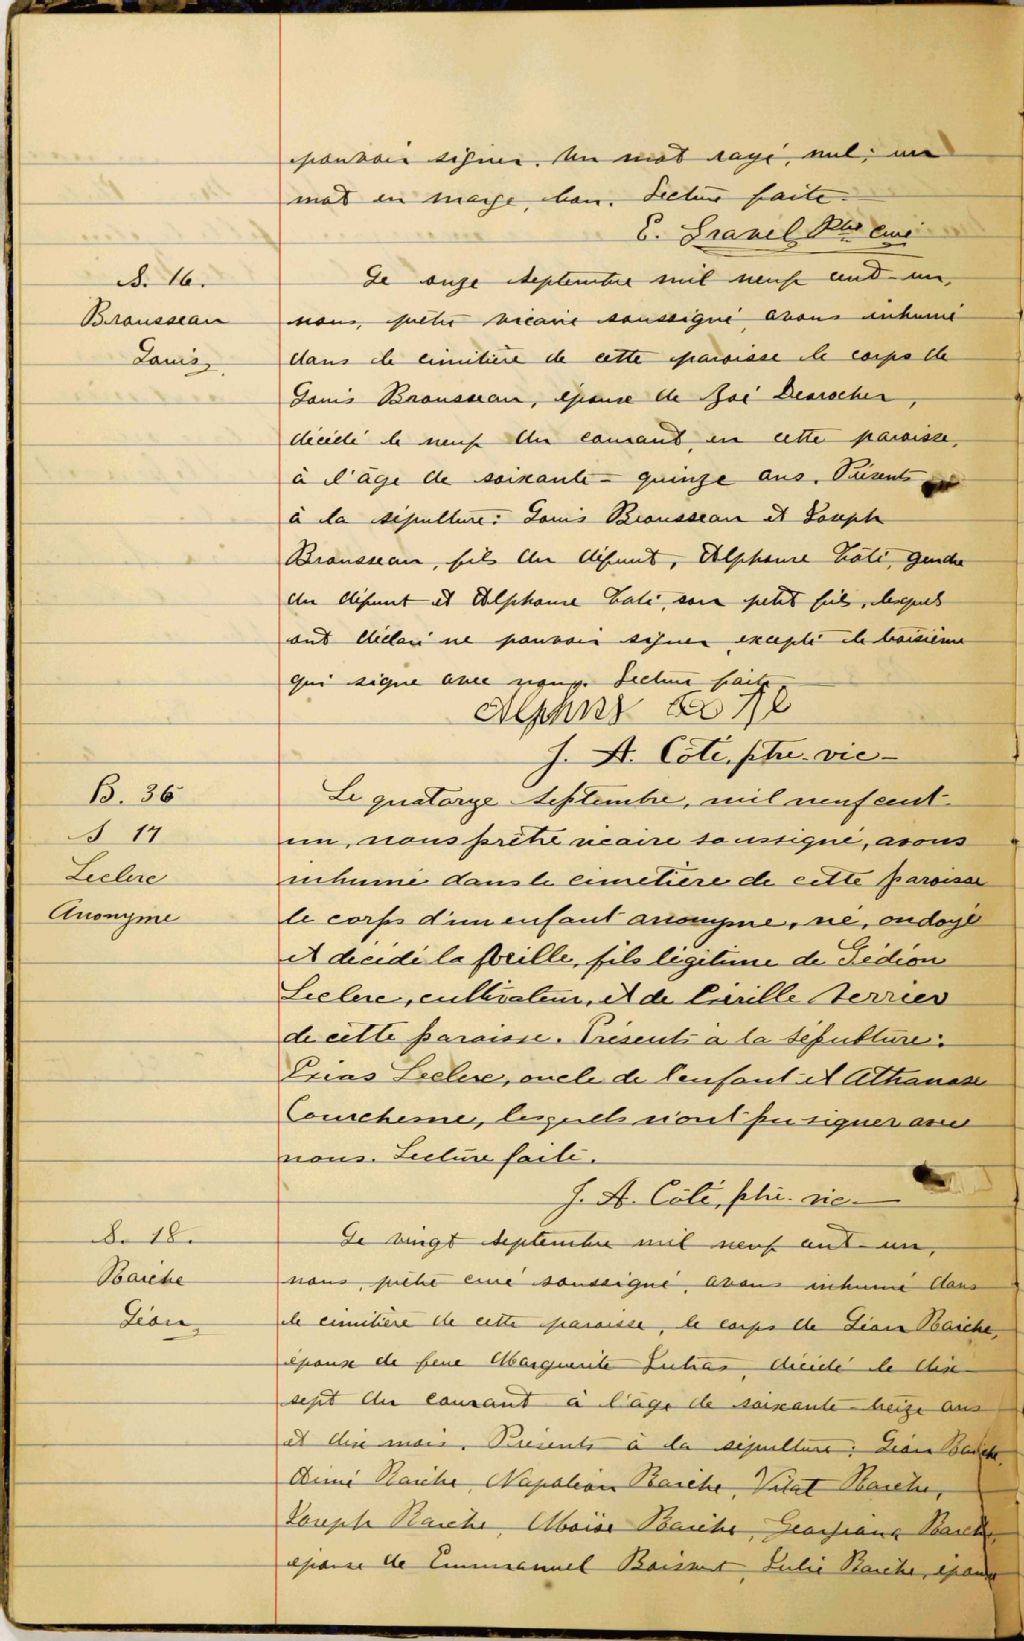 pouvoir signer. Un mot rayé, nul; un
mot en marge, bon. Lecture faite.
E. Gravel Ptre curé
S. 16.
Brousseau
Louis
Le onze septembre mil neuf cent-un,
nous, prêtre vicaire soussigné, avons inhumé
dans le cimitière de cette paroisse le corps de
Louis Brousseau, époux de Zoé Desrocher,
décédé le neuf du courant, en cette paroisse,
à l'âge de soixante-quinze ans. Présents
à la sépulture: Louis Brousseau et Joseph
Brousseau, fils du défunt, Alphonse Côté, gendre
du défunt et Alphonse Côté, son petit fils, lesquels
ont déclaré ne pouvoir signer excepté le troisième
qui signe avec nous. Lecture faite
J. A. Côté, ptre. vic-
B. 36
S 17
Leclerc
Anonyme
Le quatorze septembre, mil neuf cent-
un, nous prêtre vicaire soussigné, avons
inhumé dans le cimetière de cette paroisse
le corps d'un enfant anonyme, né, ondoyé
et décédé la veille, fils légitime de Gédéon
Leclerc, cultivateur, et de
de cette paroisse. Présents à la sépulture:
Leclerc, oncle de l'enfant et Athanase
Courchesne, lesquels n'ont pu signer avec
nous. Lecture faite.
J. A. Côté, ptre. vic-
S. 18.
Baiche
Léon
Le vingt septembre mil neuf cent-un,
nous, prêtre curé soussigné, avons inhumé dans
le cimitière de cette paroisse, le corps de Léon Baiche,
époux de feue Marguerite Jutras, décédé le dix-
sept du courant à l'âge de soixante-treize ans
et dix mois. Présents à la sépulture: Léon Baiche,
Aimé Baiche, Napoléon Baiche, Vital Baiche,
Joseph Baiche, Moïse Baiche, Georgiana Baiche,
épouse de Emmanuel Boisvert, Julie Baiche, épouse